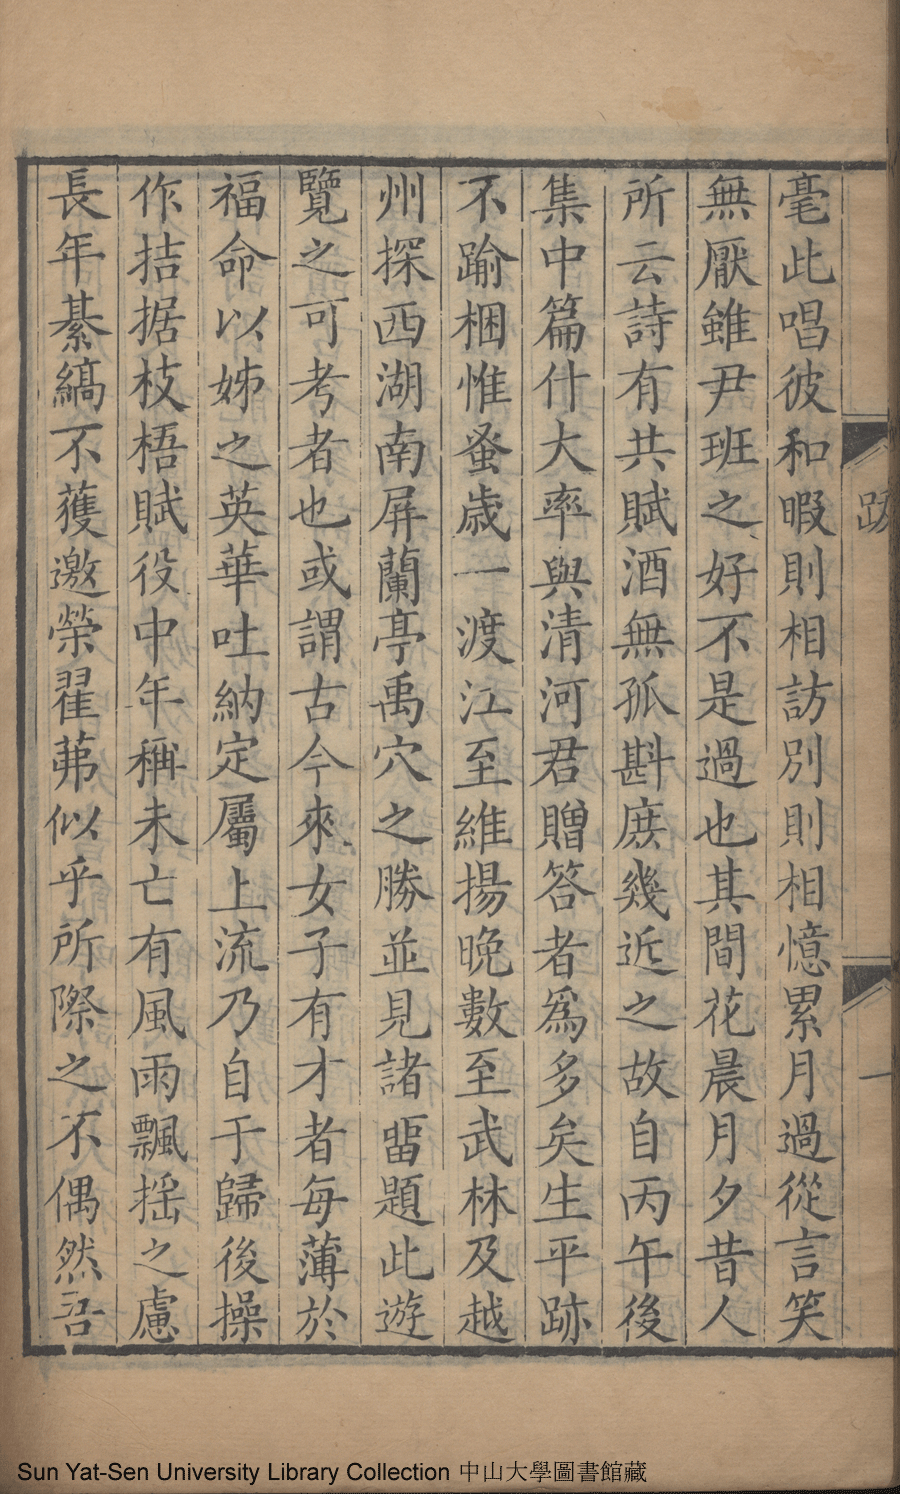 毫此唱彼和暇則相訪別則相憶累月過從言笑
無厭雖尹班之好不是過也其間花晨月夕昔人
所云詩有共賦酒無孤斟庶幾近之故自丙午後
集中篇什大率與清河君贈答者爲多矣生平跡
不踰梱惟蚤歳一渡江至維揚晚數至武林及越
州探西湖南屏蘭亭禹穴之勝並見諸畱題此遊
覽之可考者也或謂古今來女子有才者每薄於
福命以姊之英華吐納定屬上流乃自于歸後操
作拮据枝梧賦役中年稱未亡有風雨飄揺之慮
長年綦縞不獲邀榮翟茀似乎所際之不偶然吾
跋
一
Sun Yat-Sen University Library Collection 中山大學圖書館藏